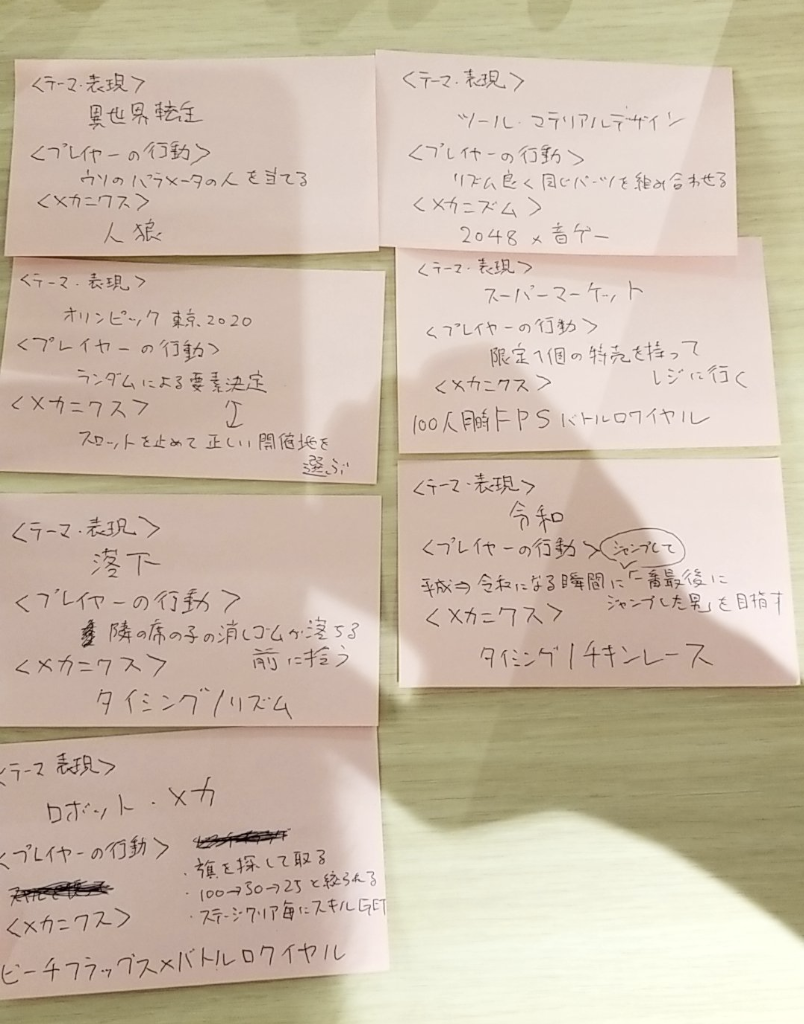 <テーマ・表現>
異世界転生
<プレイヤーの行動>
ウソのパラメータの人を当てる
<メカニクス>
人狼
<テーマ・表現>
ツール・マテリアルデザイン
<プレイヤーの行動>
リズム良く同じパーツを組み合わせる
<メカニズム>
2048×音ゲー
<テーマ・表現>
オリンピック東京2020
<プレイヤーの行動>
ランダムによる要素決定
<メカニクス>
スロットを止めて正しい開催地を
選ぶ
<テーマ・表現>
スーパーマーケット
<プレイヤーの行動>
限定1個の特売を持って
レジに行く
<メカニクス>
100人同時FPSバトルロワイヤル
<テーマ・表現>
落下
<プレイヤーの行動>
隣の席の子の消しゴムが落ちる
前に拾う
<メカニクス>
タイミング/リズム
<テーマ・表現>
令和
<プレイヤーの行動> ジャンプして
平成⇒令和になる瞬間に「一番最後に
ジャンプした男」を目指す
<メカニクス>
タイミング/チキンレース
<テーマ 表現>
ロボット・メカ
<プレイヤーの行動>
・旗を探して取る
・100→50→25と絞られる
・ステージクリア毎にスキルGET
<メカニクス>
ビーチフラッグス×バトルロワイヤル